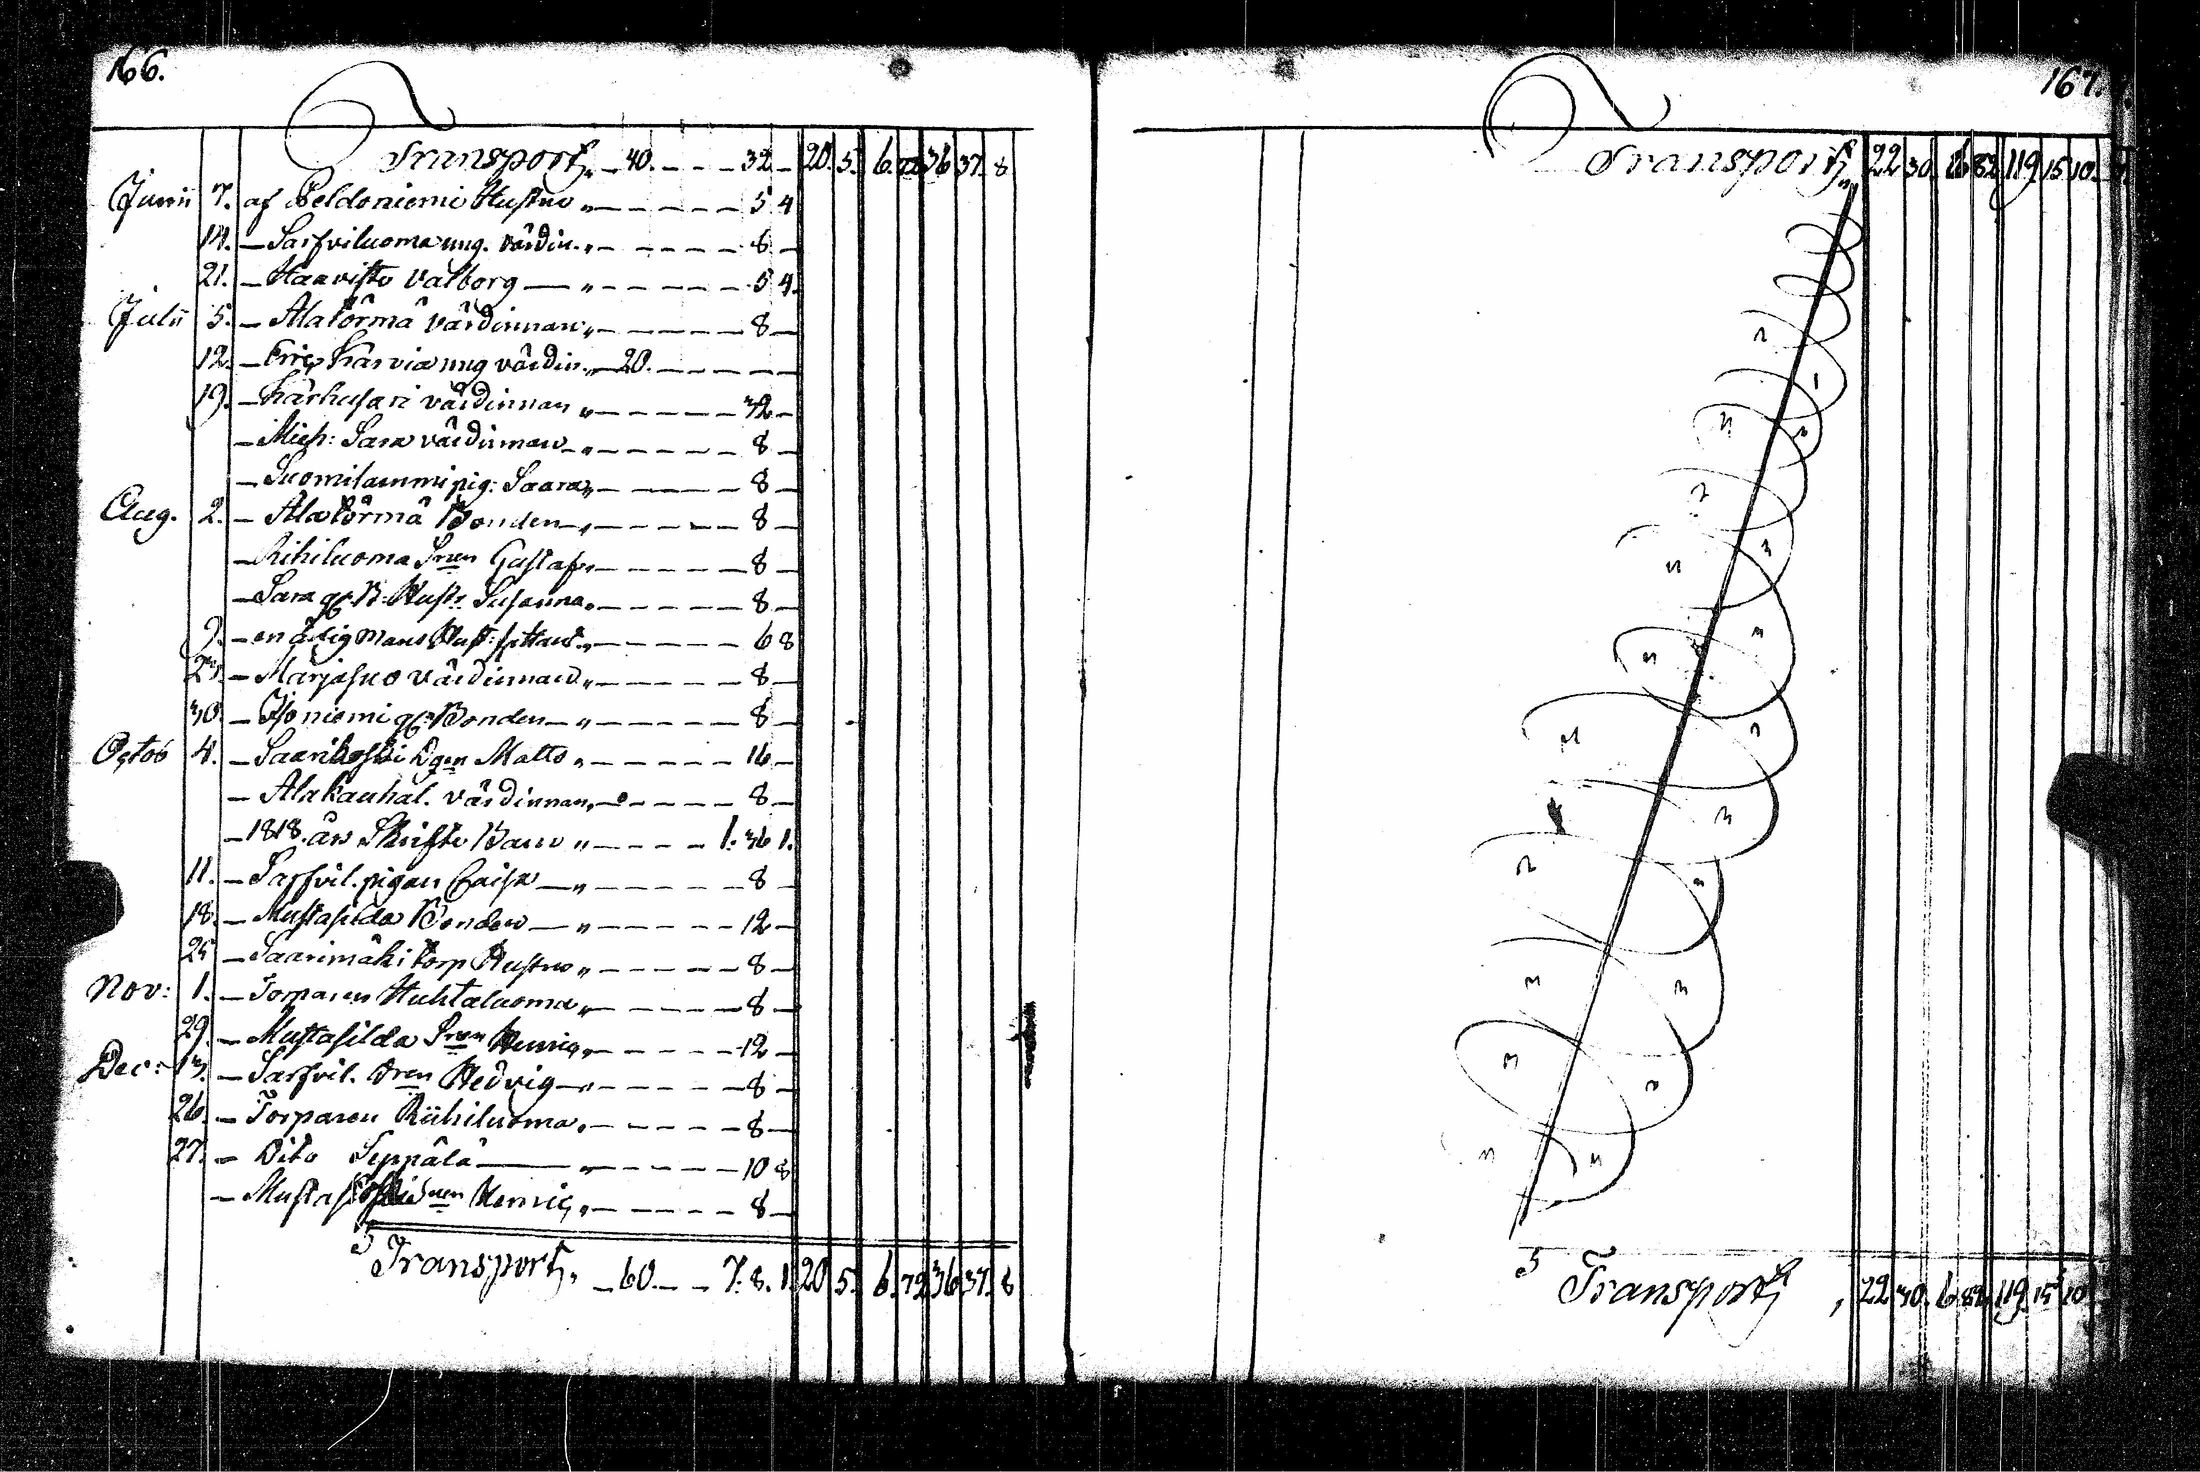 166.
Transport, 40. 32. 20. 5. 6. 72 36 37. 8
Junii 7. af Peldoniemi Hustru " 5 4
14. Sarfviluoma ung. värdin. " 8
21. Haavisto Valborg " 5 4.
Julii 5. Alatörmä värdinnan " 8
12. Eric Karvia ung värdin. " 20.
19. Karhusari värdinnan " 32
Mich: Sara värdinnan " 8
Suomilammi pig: Saara " 8
Aug. 2. Alatörmä Bonden " 8
Rihiluoma Sonen Gustaf " 8
Sara gl. B. Hustr Susanna 8
9. en ärlig mans Hust: 6 8
23. Marjasuo värdinnan " 8
30. Isoniemi gl. Bonden " 8
Octob 4. Saarikoski Dgen Malts " 16
Alakauhal. värdinnan " 8
1818. års Skrifte Barn " 1. 36 1.
11. Sarfvil. pigan Caisa " 8
18. Mustasilda Bonden " 12
25 Saarimäki torp Hustru " 8
Nov: 1. Torparen Huhtaluoma " 8
29. Mustasilda Henric " 12
Dec: 13. Sarfvil. Hedvig " 8
26. Torparen Riihiluoma 8
27. Dito Seppälä " 10 8
Henric " 8
Transport, 60. 7. 8. 1. 20 5. 6. 72 36 37. 8
167.
Transport, 22 30. 6 82 119 15 10.
Transport, 22 30. 6 82 119 15 10